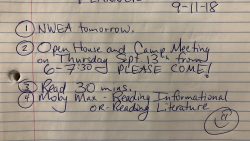 9-11-18
① NWEA tomorrow.
② Open House and Camp Meeting
on Thursday Sept. 13th from
6-7:30 PLEASE COME!
③ Read 30 mins.
④ Moby Max - Reading Informational
OR-Reading Literature